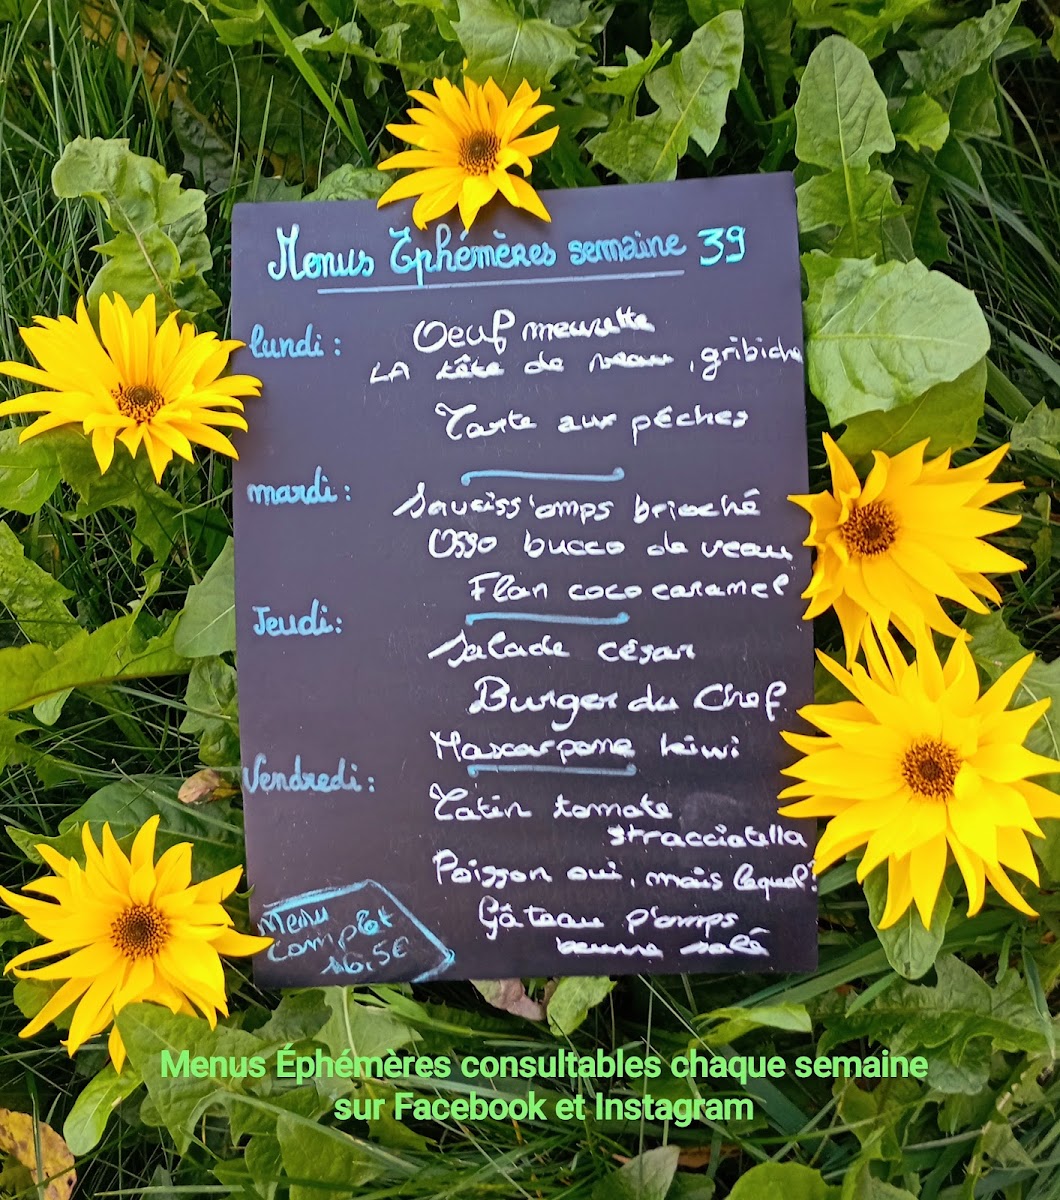 Menus Éphémères semaine 39
lundi :
Oeuf meurette
LA tête de veau, gribiche
Tarte aux pêches
mardi :
Sauciss'omps brioché
Osso bucco de veau
Flan coco caramel
Jeudi :
Salade césar
Burger du Chef
Mascarpone kiwi
Vendredi :
Tatin tomate
stracciatella
Poisson oui, mais lequel?
Gâteau p'omps
beurre salé
Menu
complet
16,5€
Menus Éphémères consultables chaque semaine
sur Facebook et Instagram